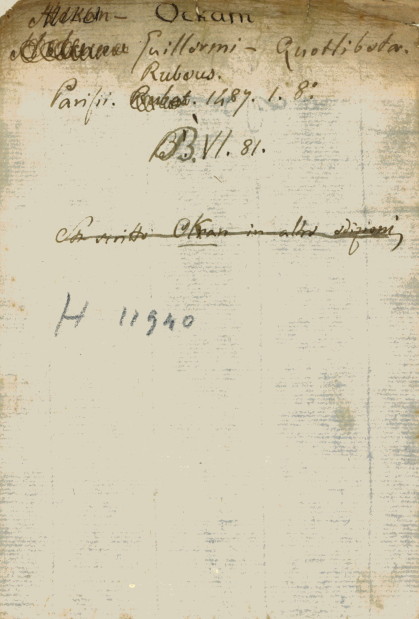 Ockam
Guillermi - Quotlibeta.
Rubeus.
Parisii. 1487. 1. 8.º
BB. VI. 81.
scritto Okam in altre edizioni
H 11940